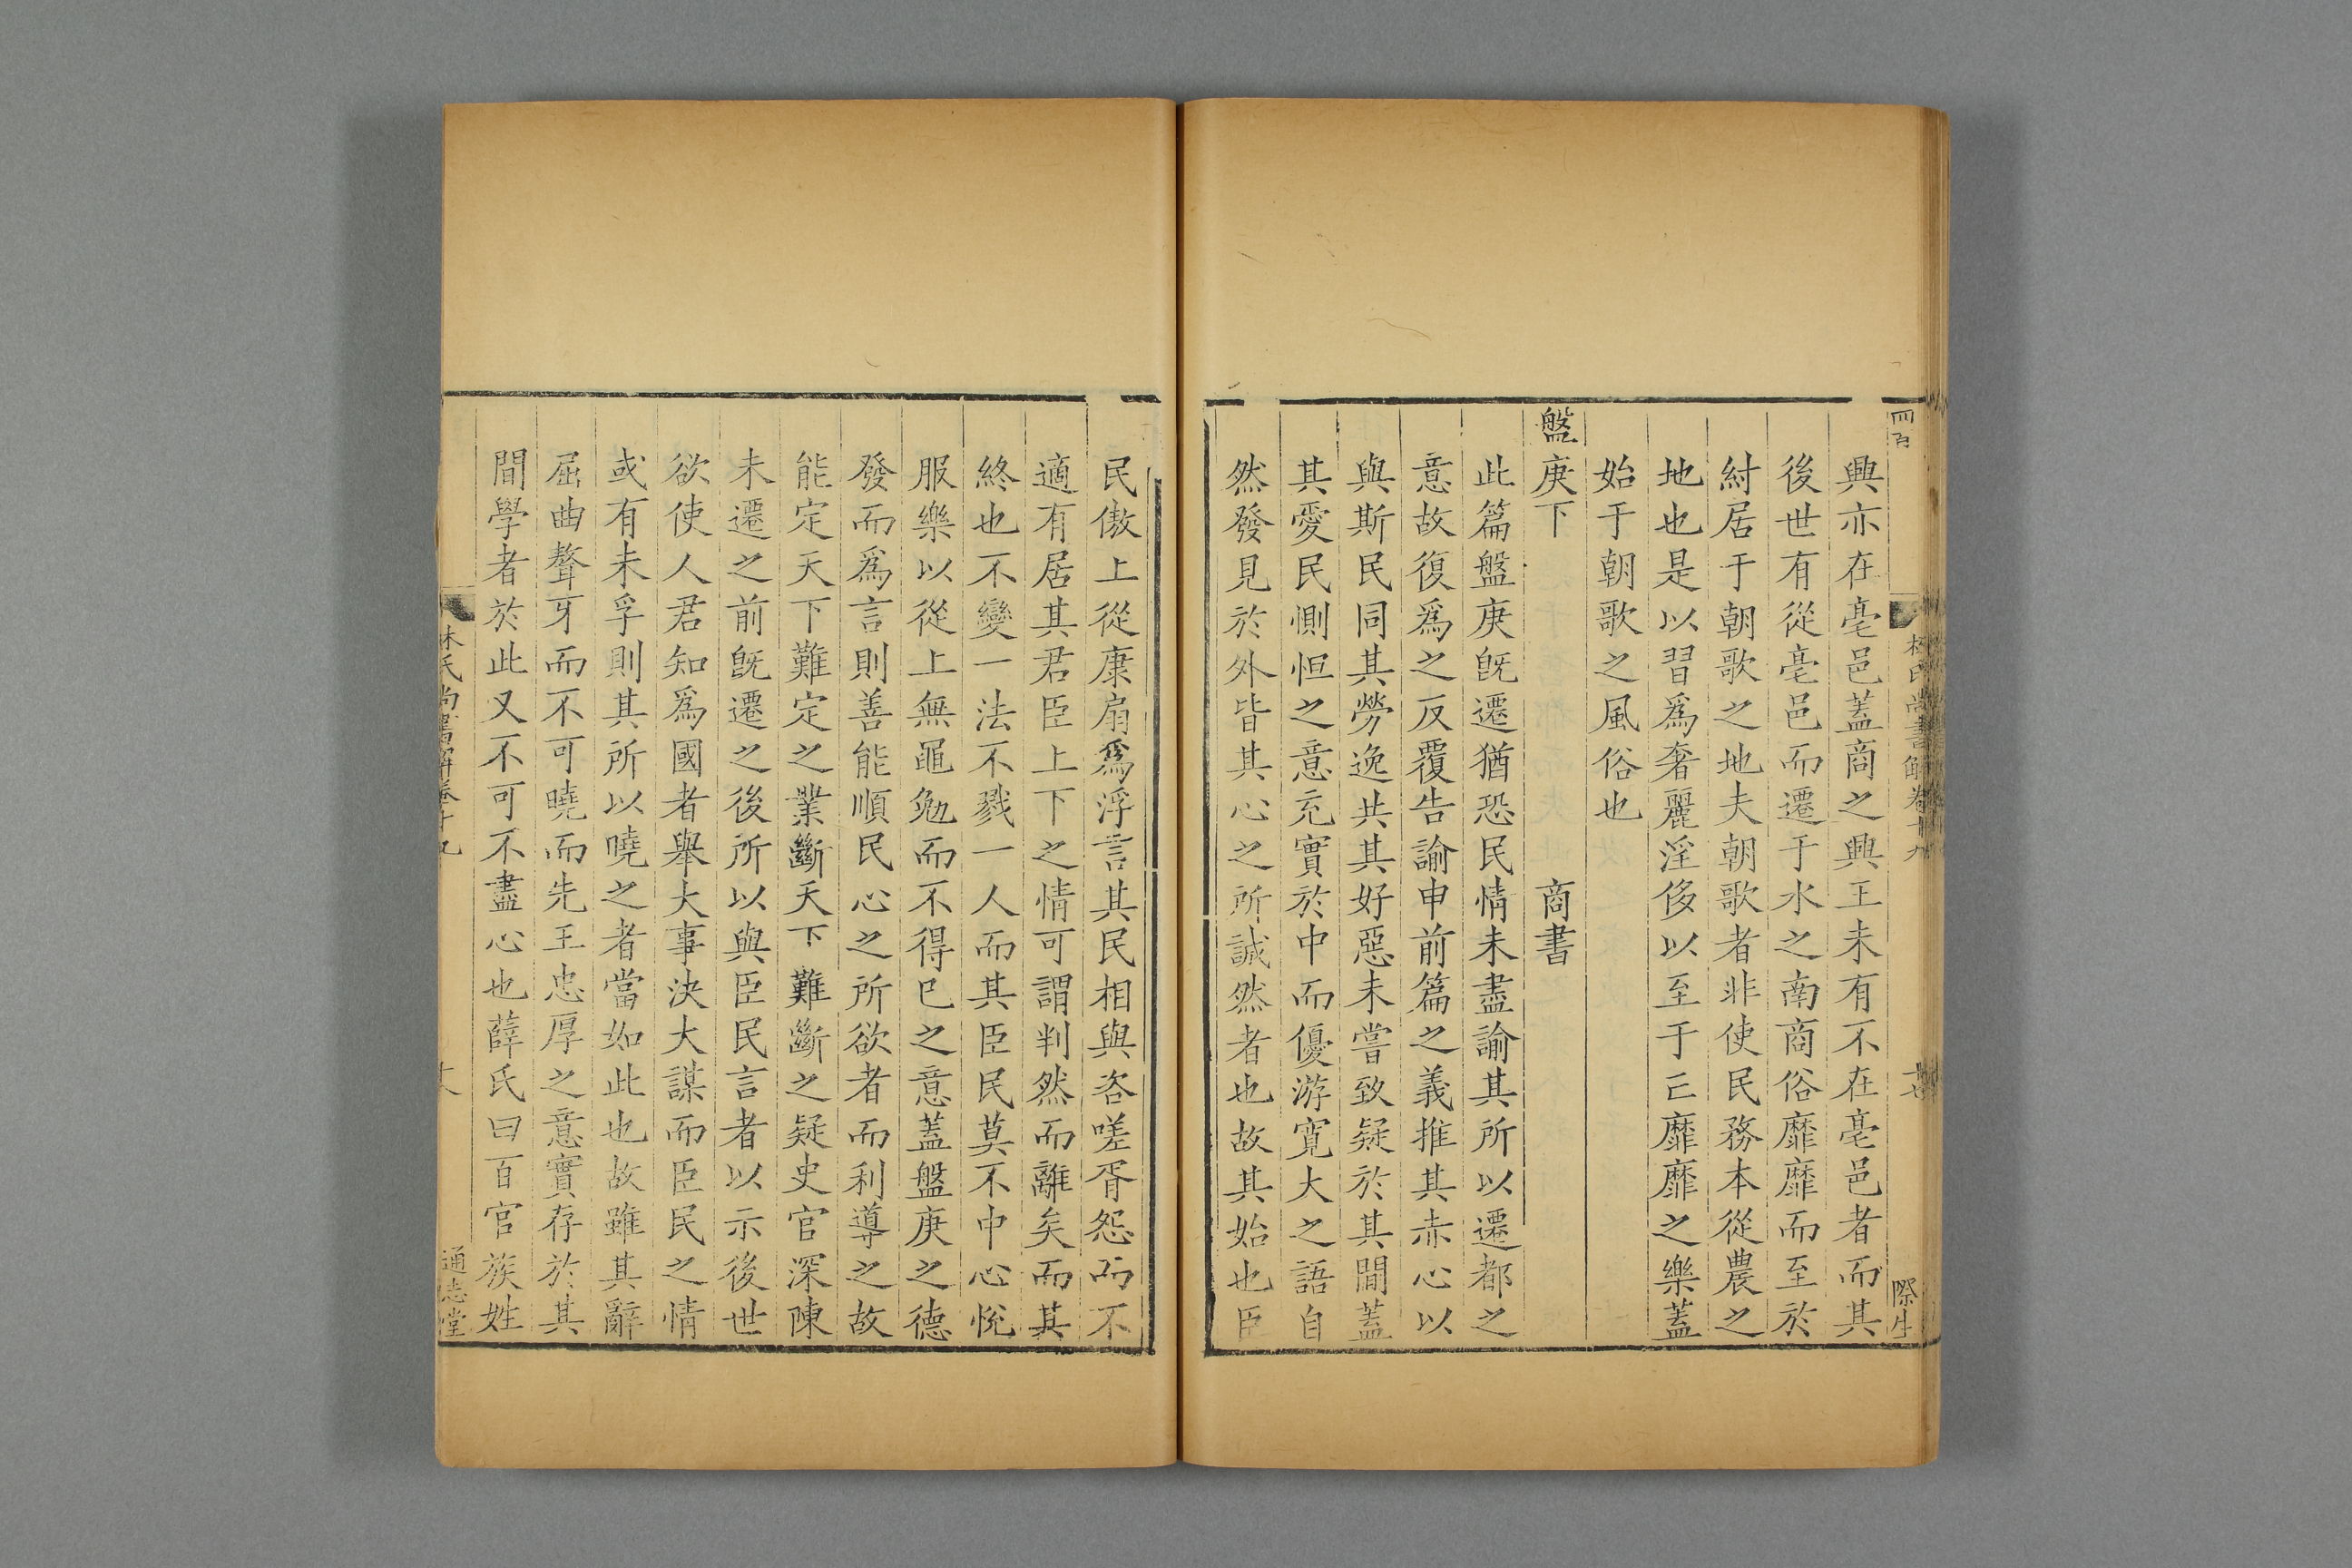 四百
林氏尚書解卷十九
十七
際生
興亦在亳邑蓋商之興王未有不在亳邑者而其
後世有從亳邑而遷于水之南商俗靡靡而至於
紂居于朝歌之地夫朝歌者非使民務本從農之
地也是以習爲奢麗淫侈以至于亡靡靡之樂蓋
始于朝歌之風俗也
盤庚下 商書
此篇盤庚旣遷猶恐民情未盡諭其所以遷都之
意故復爲之反覆告諭申前篇之義推其赤心以
與斯民同其勞逸共其好惡未嘗致疑於其間蓋
其愛民惻怛之意充實於中而優游寛大之語自
然發見於外皆其心之所誠然者也故其始也臣
民傲上從康扇爲浮言其民相與咨嗟胥怨而不
適有居其君臣上下之情可謂判然而離矣而其
終也不變一法不戮一人而其臣民莫不中心悅
服樂以從上無黽勉而不得已之意蓋盤庚之德
發而爲言則善能順民心之所欲者而利導之故
能定天下難定之業斷天下難斷之疑史官深陳
未遷之前旣遷之後所以與臣民言者以示後世
欲使人君知爲國者舉大事決大謀而臣民之情
或有未孚則其所以曉之者當如此也故雖其辭
屈曲聱牙而不可曉而先王忠厚之意實存於其
間學者於此又不可不盡心也薛氏曰百官族姓
林氏尚書解卷十九
通志堂